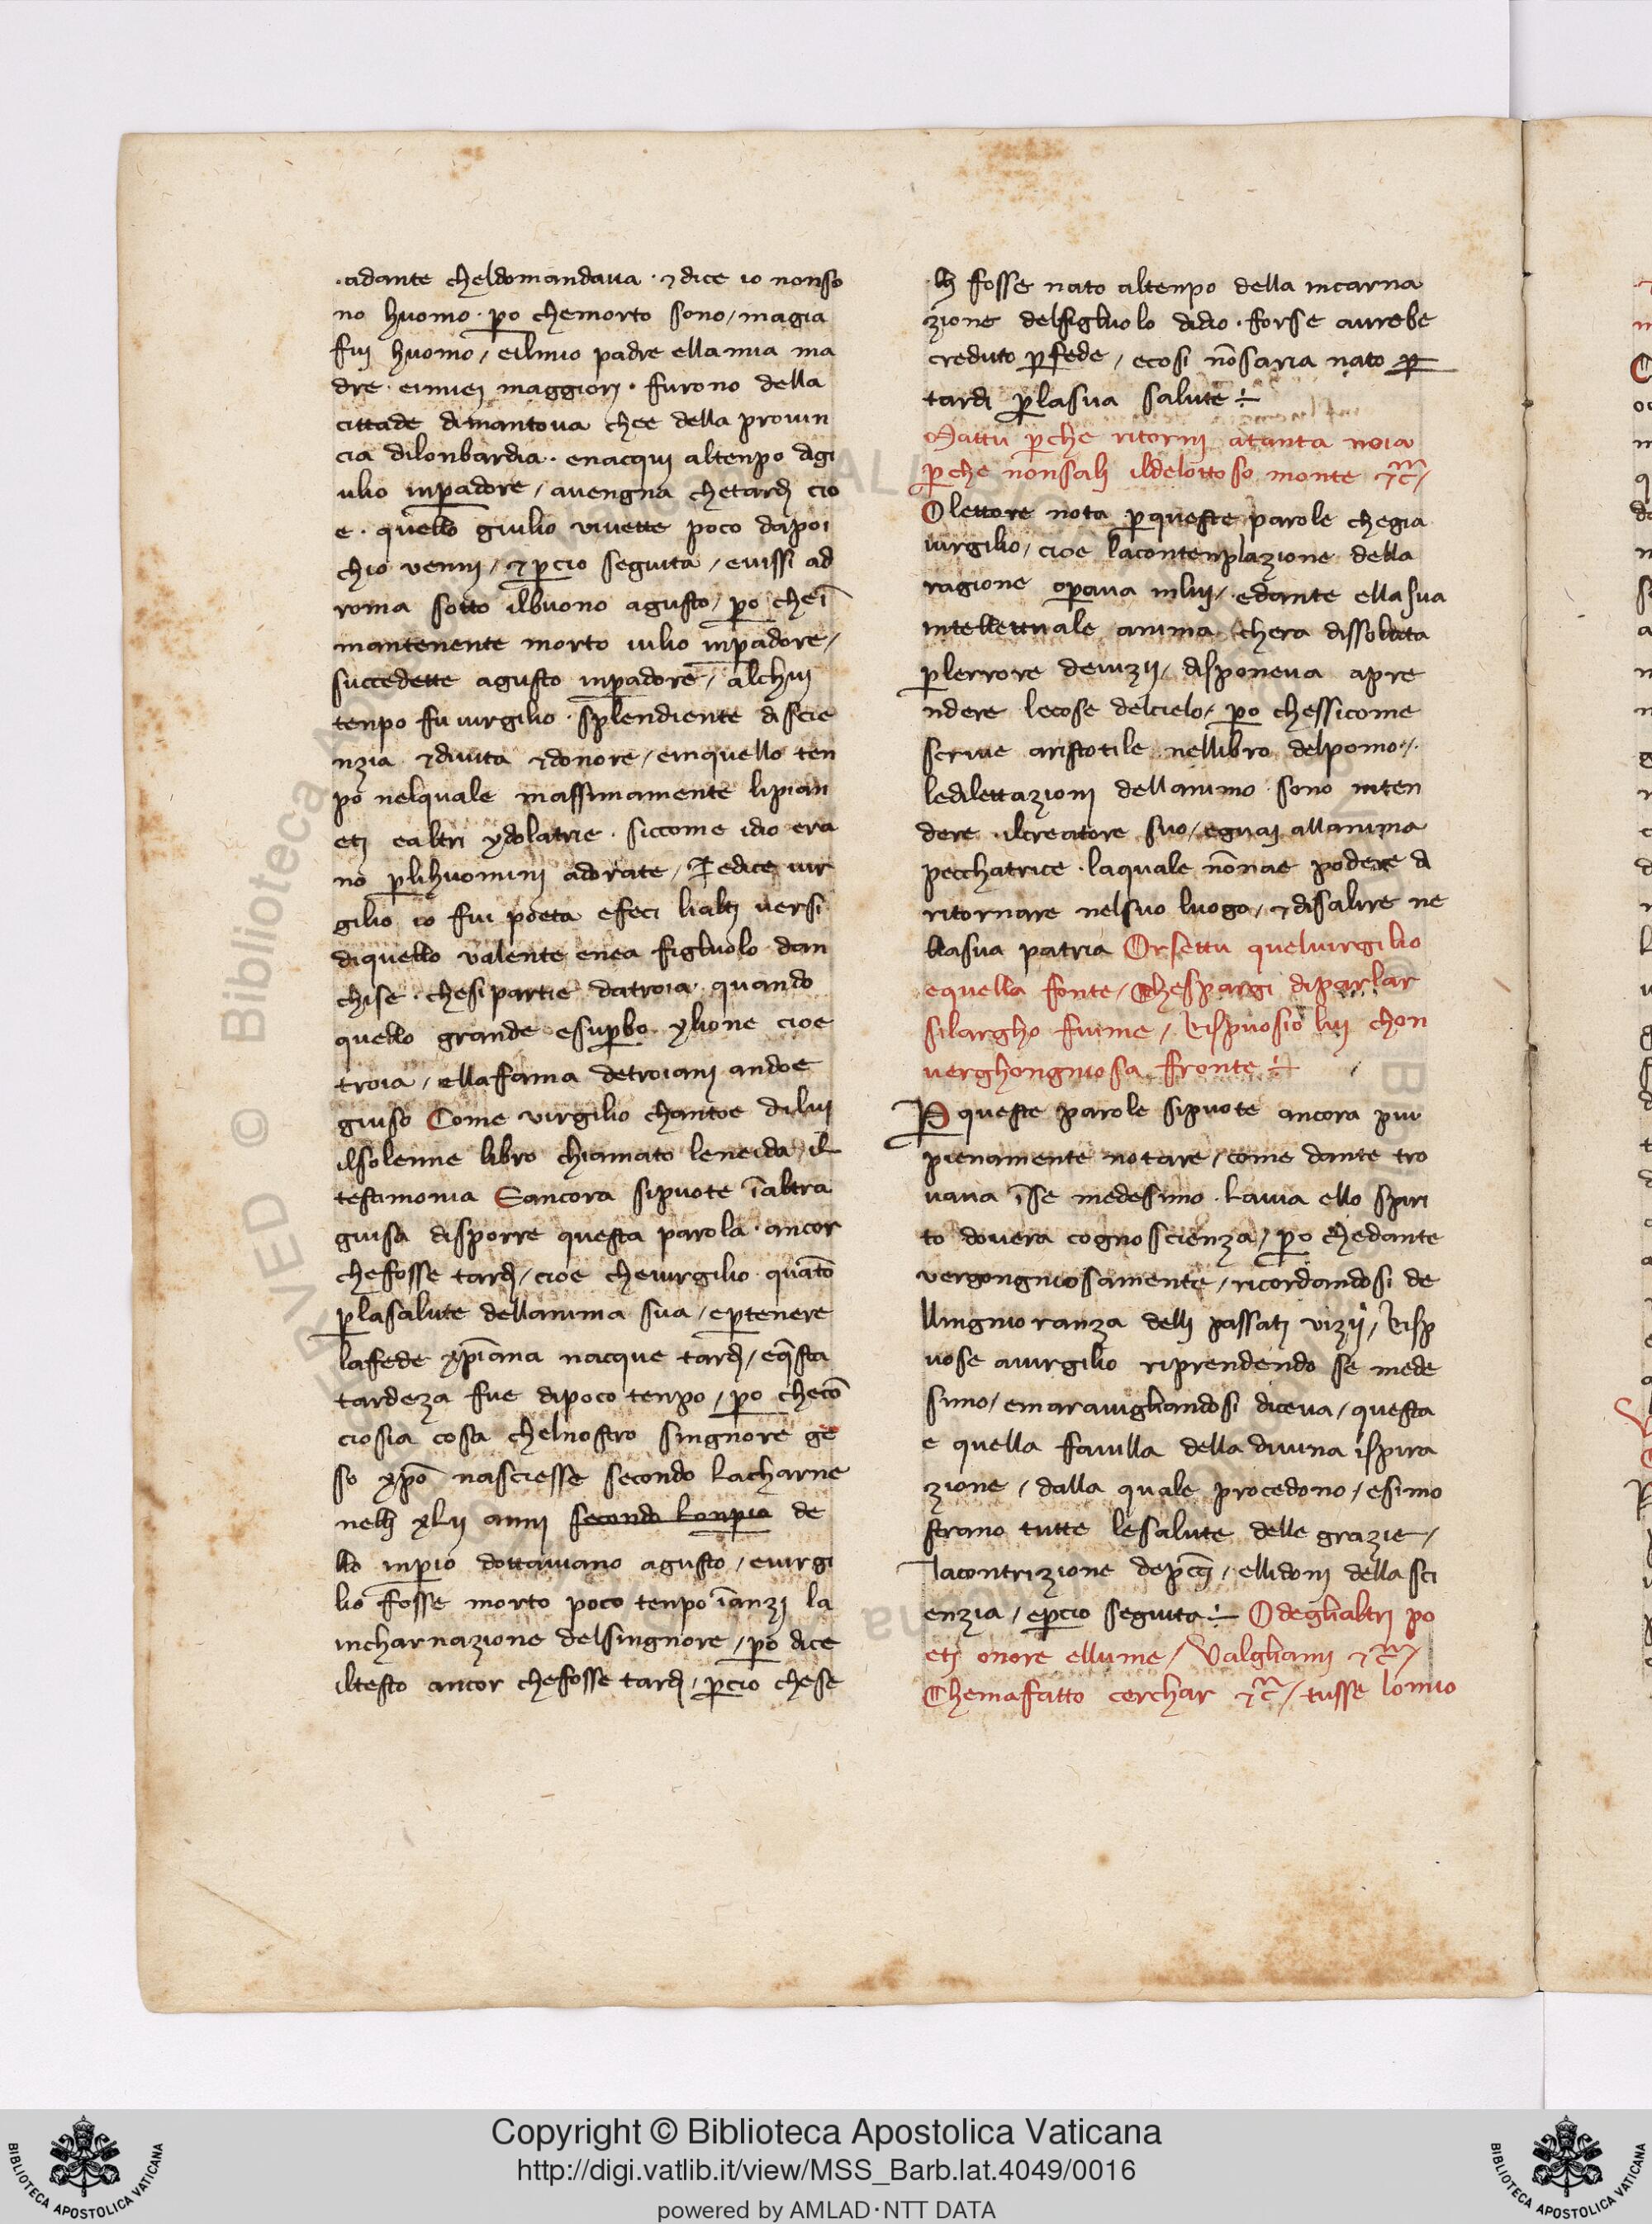 .adante cheldomandaua . ⁊dice io nonso
no huomo . ꝑo chemorto sono / magia
fuj huomo / eilmio padre ella mia ma
dre . eimiej maggiorj . furono della
cittade dimantoua chee della prouin
cia dilonbardia . enacqui altenpo digi
ulio inꝑadore / auengna chetardj cio
e . quello giulio viuette poco dapoi
chio vennj / ⁊ꝑcio seguita / euissi ad
roma sotto ilbuono agusto / ꝑo cheī
mantenente morto iulio inꝑadore /
succedette agusto inꝑadore / alchuj
tenpo fu uirgilio . splendiente di scie
nzia ⁊diuita ⁊donore / einquello ten
po nelquale massimamente lipian
etj ealtri ydolatrie . siccome idio era
no ꝑlihuominj adorate / Et edice uir
gilio io fui poeta efeci lialtj uersi
diquello valente enea figluolo dan
chise . chesipartie datroia quando
quello grande esuꝑbo ylione cioe
troia / ella fama detroianj andoe
giuso Come virgilio chantoe dilui
ilsolenne libro chiamato leneida / il
testamonia Eancora sipuote īaltra
guisa disporre questa parola . ancor
chefosse tardj / cioe cheuirgilio quāto
ꝑlasalute dellanima sua / eꝑtenere
lafede xp̄iana nacque tardj / eq̄sta
tardeza fue dipoco tenpo / ꝑo checō
ciosia cosa chelnostro singnore ge
so xp̄o nasciesse secondo lacharne
nellj xlij annj secondo lonꝑio de
llo inꝑio dottauiano agusto / euirgi
lio fosse morto poco tenpo īanzj la
incharnazione delsingnore / ꝑo dice
iltesto ancor chefosse tardj / ꝑcio chese
llj fosse nato altenpo della incarna
zione delfigluolo didio . forse aurebe
creduto ꝑfede / ecosi nōsaria nato ꝑ
tardi ꝑlasua salute ÷
Mattu ꝑche ritornj atanta noia
ꝑche nonsalj ildelottoso monte ⁊c̄ /
Olettore nota ꝑqueste parole chegia
uirgilio / cioe lacontenplazione della
ragione oꝑaua inluj / edante ella sua
intellettuale anima chera dissoluta
ꝑlerrore deuizij / disponeua apre
ndere lecose delcielo / ꝑo chessicome
scriue aristotile nellibro delpomo /.
ledilettazionj dellanimo sono inten
dere . ilcreatore suo / eguaj allanima
pecchatrice . laquale nōnae podere di
ritornare nelsuo luogo / ⁊disalire ne
llasua patria Orsettu queluirgilio
equella fonte / Chespargi diparlar
silargho fiume / Rispuosio luj chon
uerghongniosa fronte ÷
P queste parole sipuote ancora piu
pienamente notare / come dante tro
uaua īse medesimo . lauia ello spiri
to douera cognoscienza / ꝑo chedante
vergongniosamente / ricordandosi de
llingnioranza dellj passatj vizij / Risp
uose auirgilio riprendendo se mede
simo / emarauigliandosi diceua / questa
e quella fauilla della diuina ispira
zione / dalla quale procedono / esimo
strano tutte lesalute delle grazie /
lacontrizione depc̄cj / ellidonj della sci
enzia / eꝑcio seguita ÷ Odeglialtrj po
etj onore ellume / Valglianij ⁊c̄ /
Chemafatto cerchar ⁊c̄ / tusse lomio
Copyright © Biblioteca Apostolica Vaticana
http://digi.vatlib.it/view/MSS_Barb.lat.4049/0016
powered by AMLAD·NTT DATA